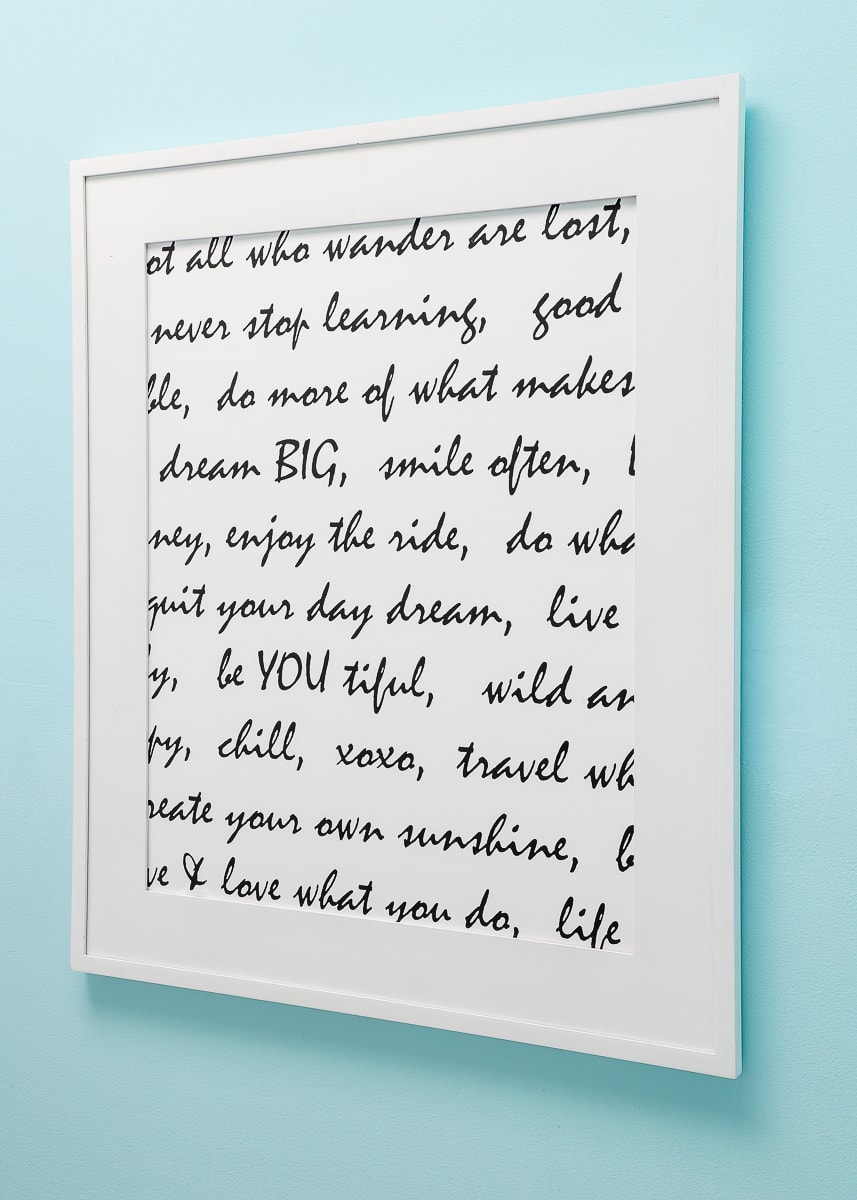 ot all who wander are lost,
never stop learning, good
ble, do more of what makes
dream BIG, smile often,
ney, enjoy the ride, do wha
quit your day dream, live
y, be YOU tiful, wild an
py, chill, xoxo, travel wh
reate your own sunshine, b
ve & love what you do, life